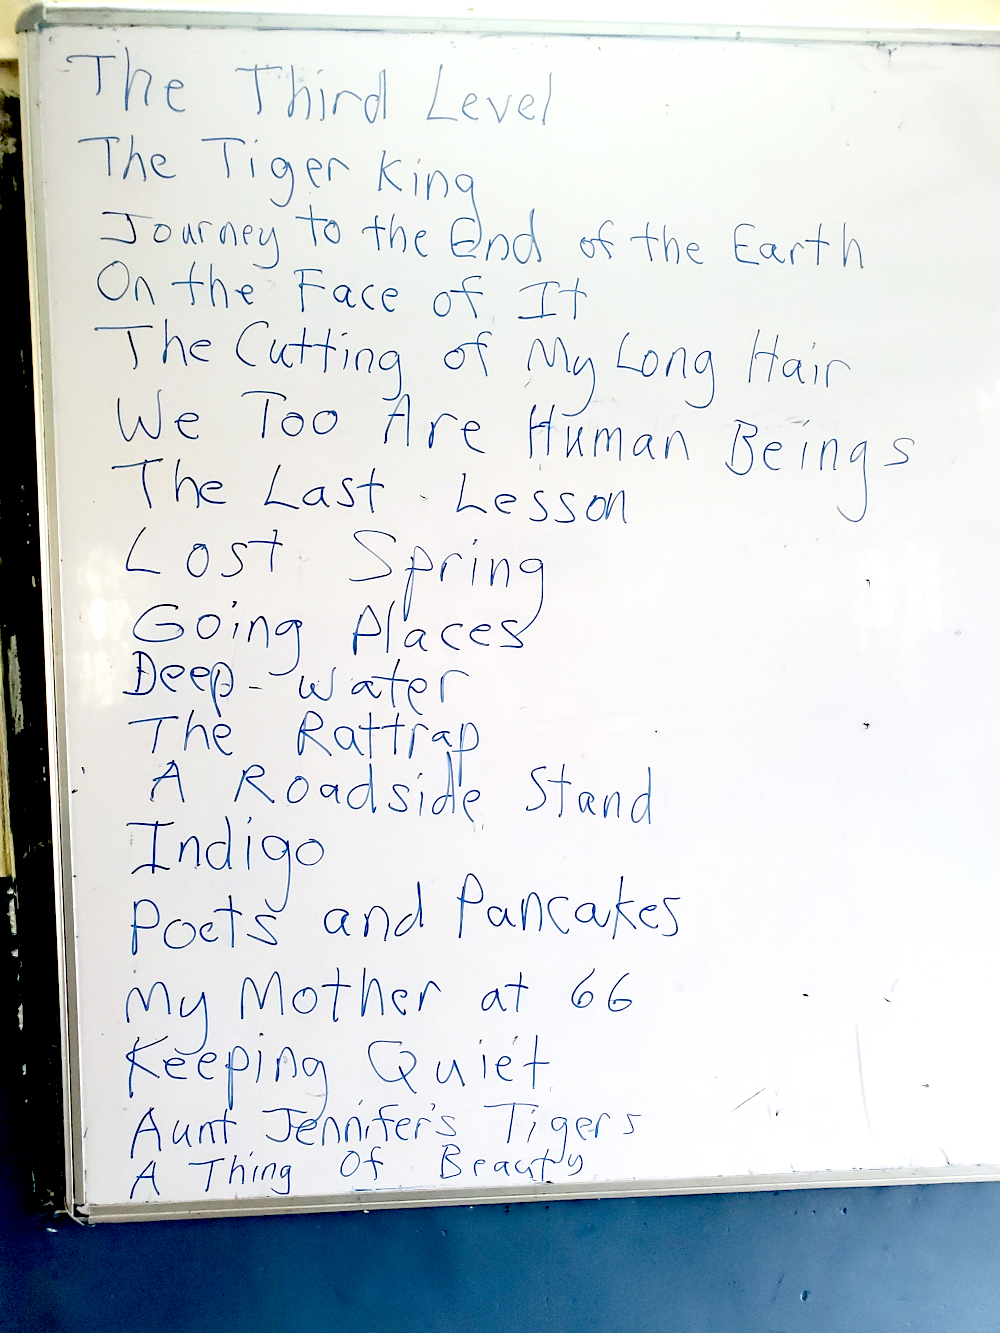 The Third Level
The Tiger King
Journey to the End of the Earth
On the Face of It
The Cutting of My Long Hair
We Too Are Human Beings
The Last Lesson
Lost Spring
Going Places
Deep-Water
The Rattrap
A Roadside Stand
Indigo
Poets and Pancakes
My Mother at 66
Keeping Quiet
Aunt Jennifer's Tigers
A Thing Of Beauty